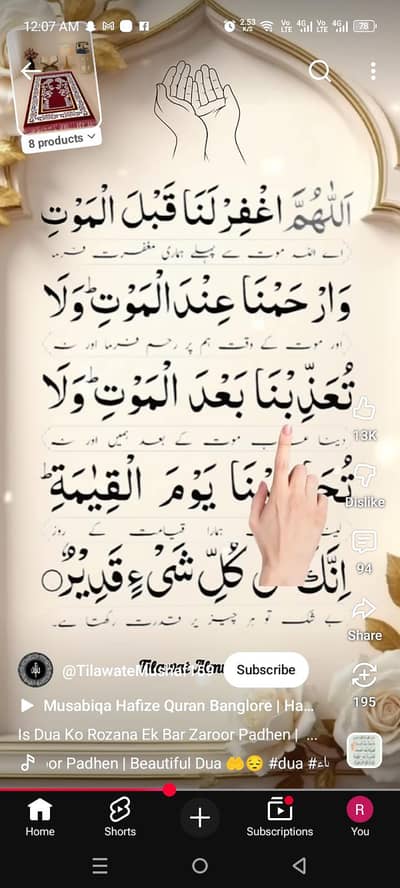 12:07 AM
2.53 K/S
Vo LTE 4G
Vo LTE 4G
78
8 products
اَللّٰهُمَّ اغْفِرْ لَنَا قَبْلَ الْمَوْتِ
اے اللہ موت سے پہلے ہماری مغفرت فرما
وَارْحَمْنَا عِنْدَ الْمَوْتِ ؕ وَلَا
اور موت کے وقت ہم پر رحم فرما اور نہ
تُعَذِّبْنَا بَعْدَ الْمَوْتِ ؕ وَلَا
دینا موت کے بعد ہمیں اور نہ
13K
يَوْمَ الْقِيٰمَةِ ؕ
Dislike
ہمارا قیامت کے روز
اِنَّكَ كُلِّ شَیْءٍ قَدِيْرٌ
94
بے شک تو ہر چیز پر قدرت رکھتا ہے۔
Share
Subscribe
195
Musabiqa Hafize Quran Banglore | Ha...
Is Dua Ko Rozana Ek Bar Zaroor Padhen | ...
or Padhen | Beautiful Dua 🤲😔 #dua #دعاء
Home
Shorts
Subscriptions
R
You